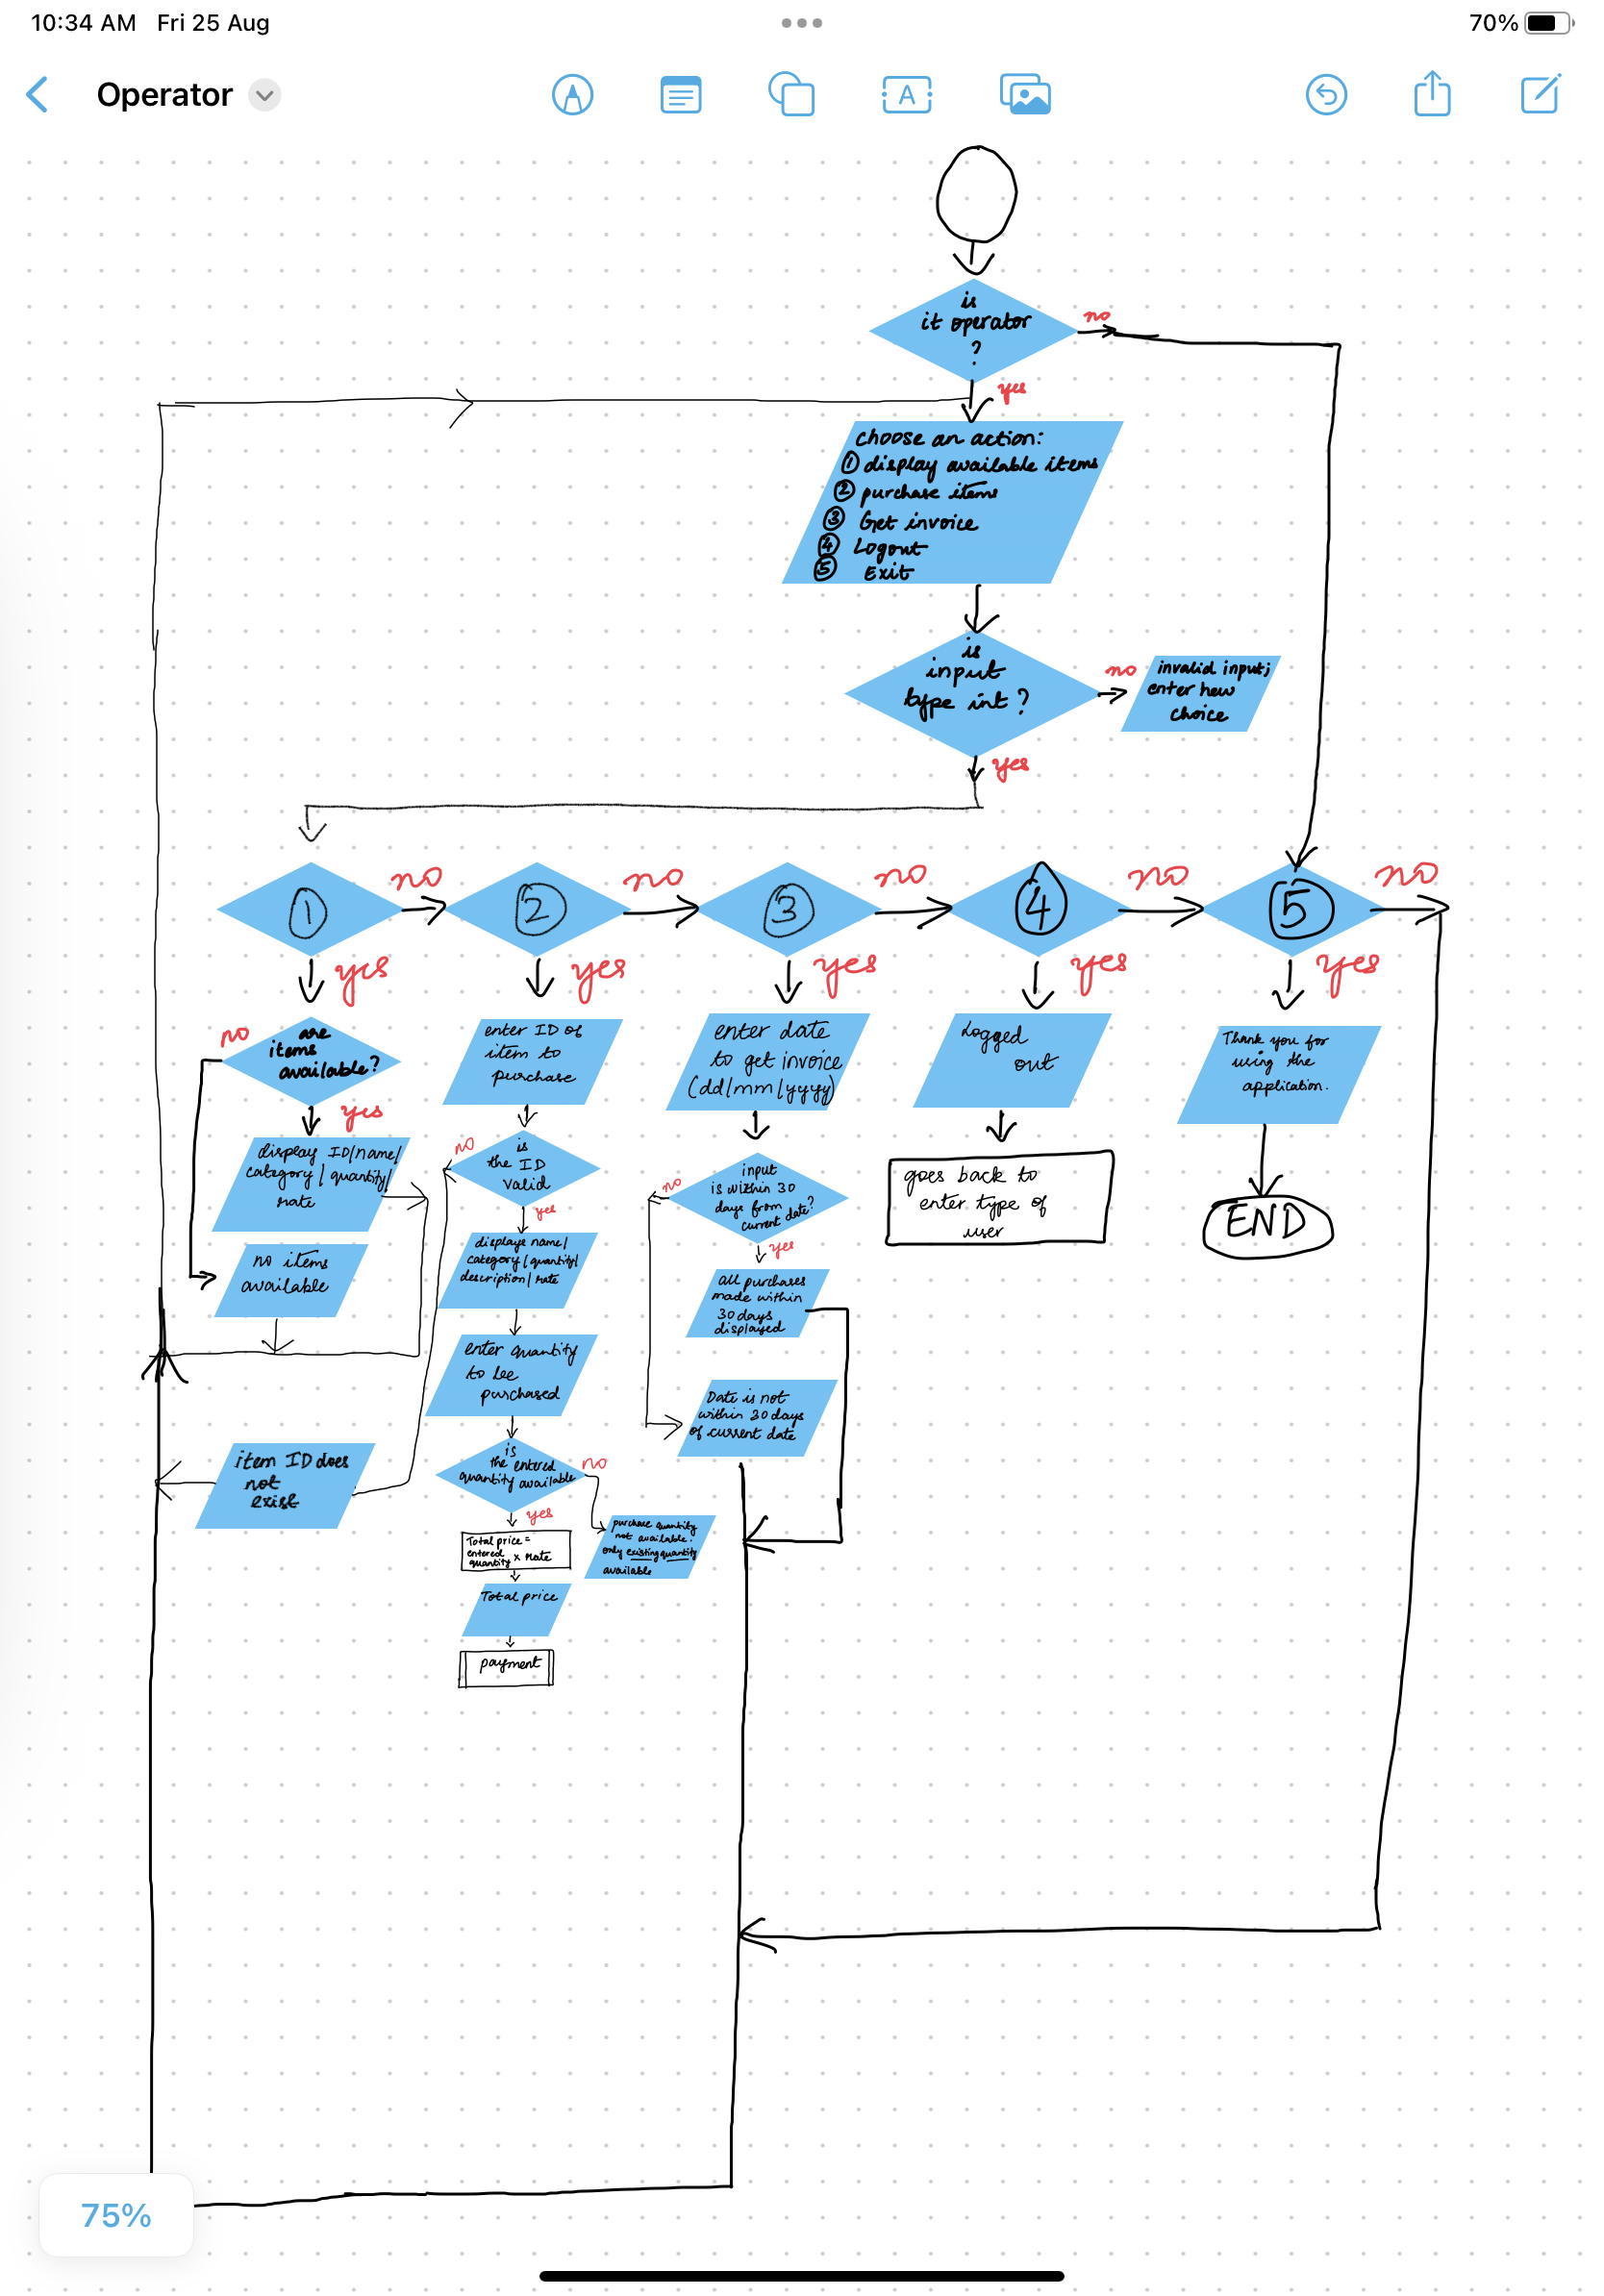 10:34 AM Fri 25 Aug
70%
Operator
A
is
it operator
?
no
yes
choose an action:
① display available items
② purchase items
③ Get invoice
④ Logout
⑤ Exit
is
input
type int ?
no
invalid input;
enter new
choice
yes
1
no
2
no
3
no
4
no
5
no
yes
yes
yes
yes
yes
no
are
items
available?
yes
display ID/name/
category / quantity/
rate
no items
available
item ID does
not
exist
enter ID of
item to
purchase
no
is
the ID
valid
yes
displays name/
category / quantity/
description/ rate
enter quantity
to be
purchased
is
the entered
quantity available
no
yes
Total price =
entered
quantity x rate
purchase quantity
not available.
only existing quantity
available
Total price
payment
enter date
to get invoice
(dd/mm/yyyy)
no
input
is within 30
days from
current date?
yes
all purchases
made within
30 days
displayed
Date is not
within 30 days
of current date
Logged
out
goes back to
enter type of
user
Thank you for
using the
application.
END
75%